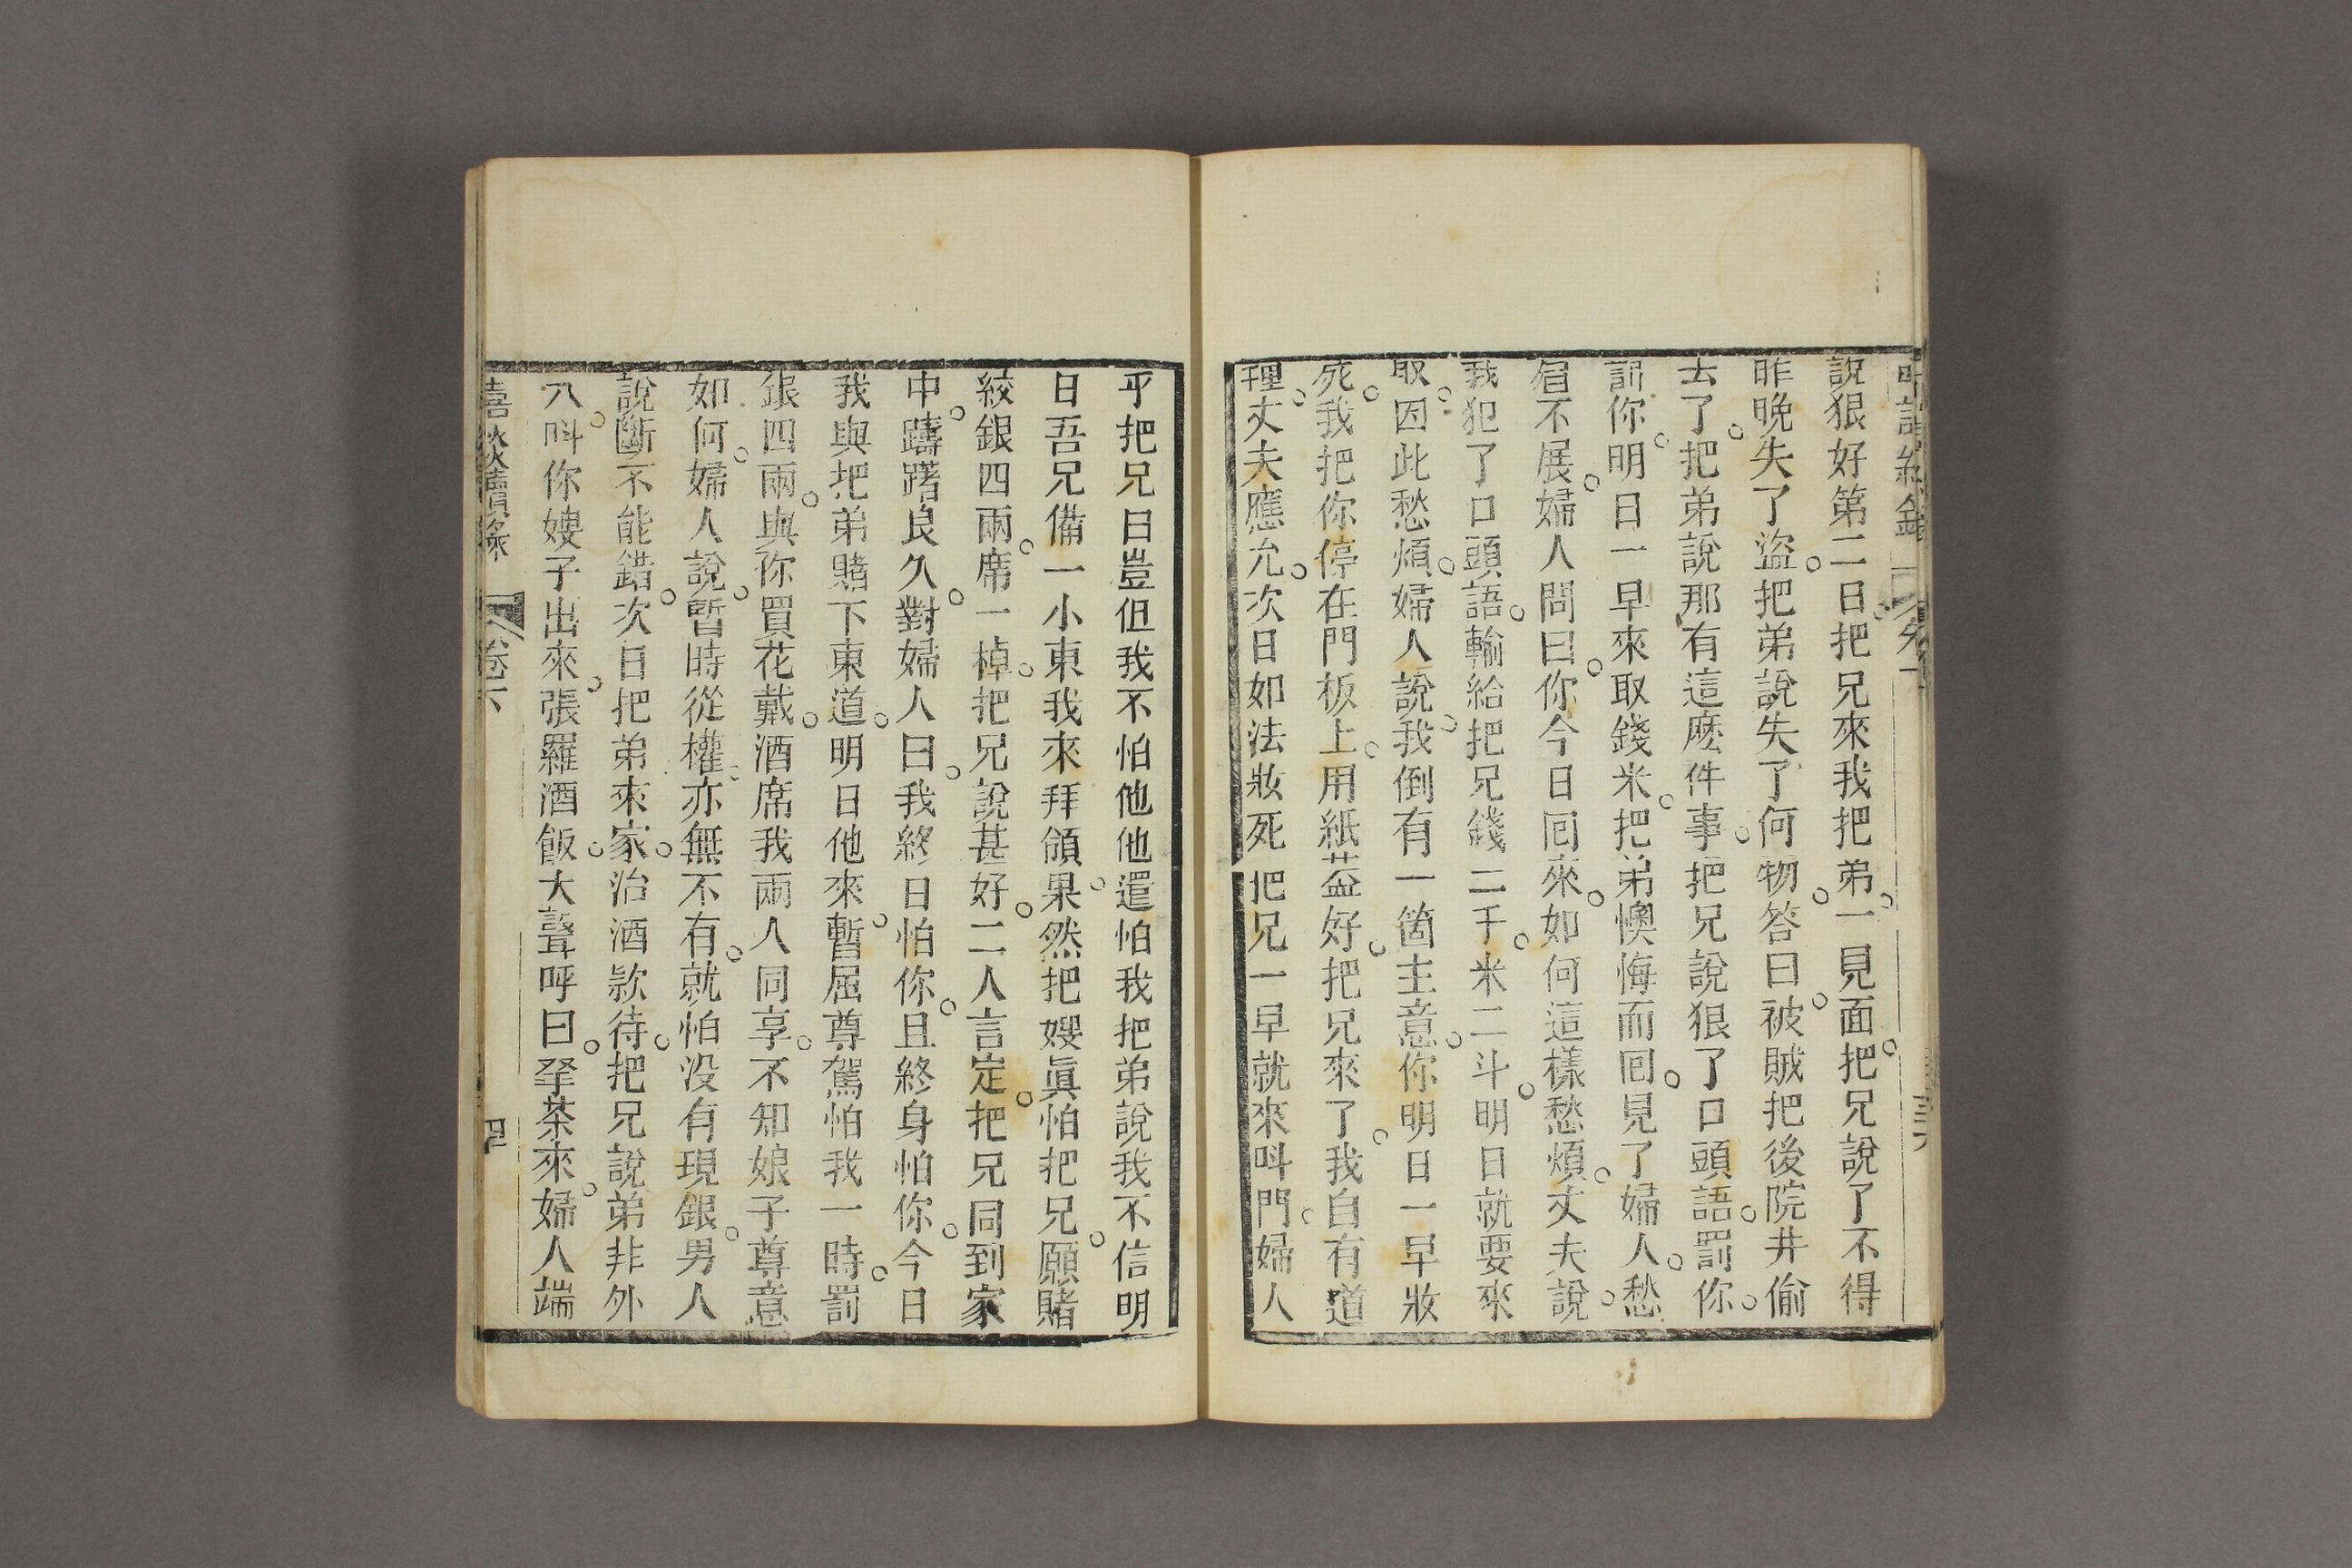 說狠好第二日把兄來我把弟。一見面。把兄說了不得
昨晚失了盜。把弟說失了何物。答曰。被賊把後院井偷
去了。把弟說那有這麽件事。把兄說狠了口頭語。罰你。
罰你。明日一早來取錢米。把弟懊悔而囘。見了婦人。愁
眉不展。婦人問曰。你今日囘來。如何這樣愁煩。丈夫說。
我犯了口頭語。輸給把兄錢二千。米二斗。明日就要來
取。因此愁煩。婦人說。我倒有一箇主意。你明日一早妝
死。我把你停在門板上。用紙葢好。把兄來了。我自有道
理。丈夫應允。次日如法妝死把兄一早就來呌門。婦人
乎把兄曰豈但我不怕他他還怕我把弟說我不信明
日吾兄備一小東我來拜領。果然把嫂眞怕把兄。願賭
絞銀四兩。席一棹。把兄說甚好。二人言定。把兄同到家
中。躊躇良久。對婦人曰。我終日怕你。且終身怕你。今日
我與把弟賭下東道。明日他來。暫屈尊駕怕我一時。罰
銀四兩。與你買花戴。酒席我兩人同享。不知娘子尊意
如何。婦人說。暫時從權。亦無不有。就怕没有現銀。男人
說斷不能錯。次日把弟來家。治酒款待。把兄說弟非外
人。呌你嫂子出來。張羅酒飯。大聲呼曰。拏茶來。婦人端
嘻談續錄 卷下